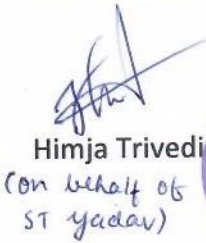 Himja Trivedi
(on behalf of
ST Yadav)